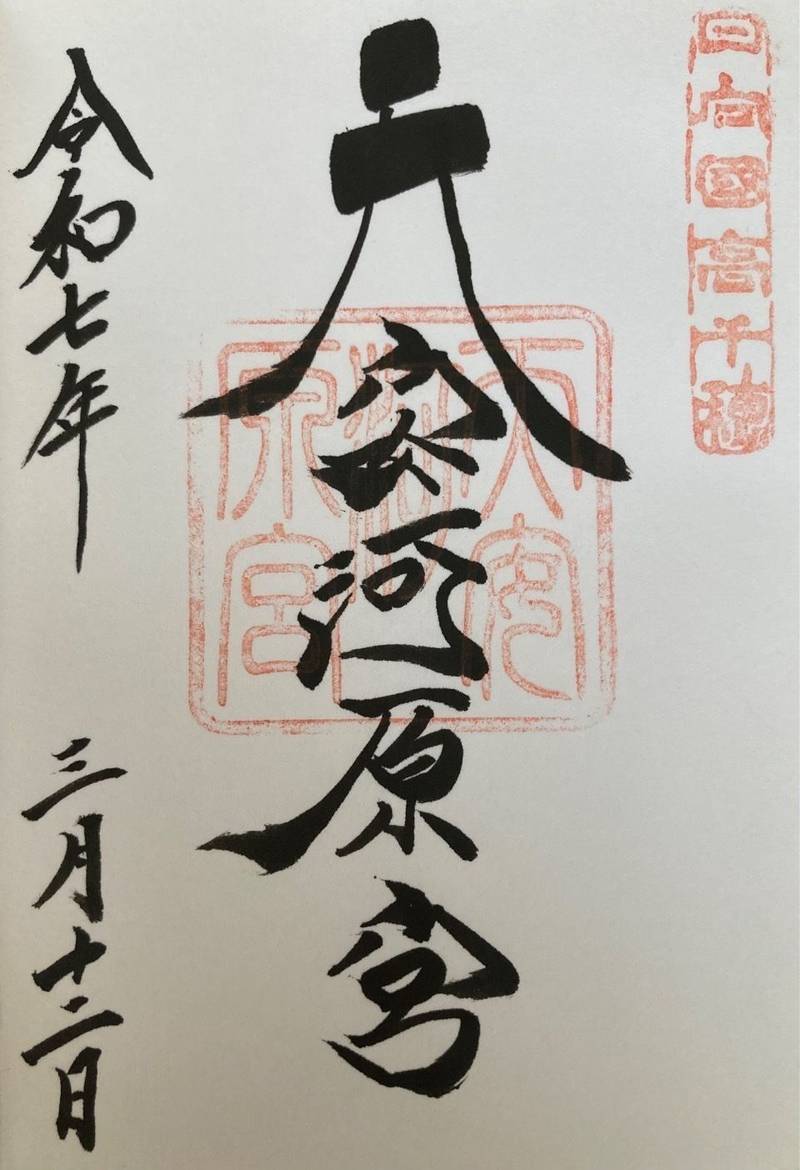 日向國高千穂
天安河原宮
天安
河
原宮
令和七年 三月十二日